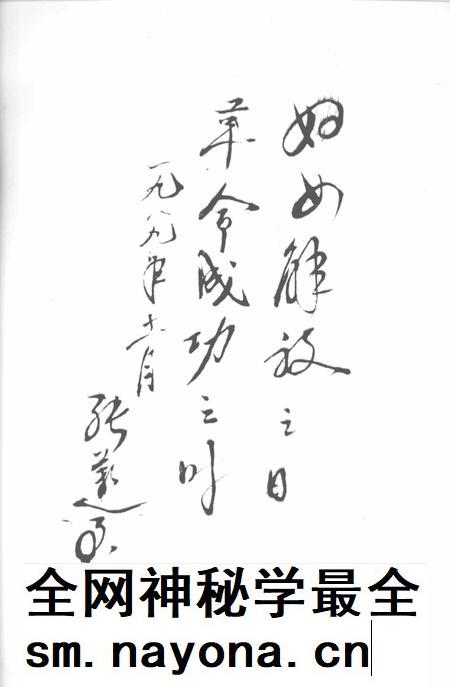 妇女解放之日
革命成功之时
一九八九年十一月
张
全网神秘学最全
sm.nayona.cn